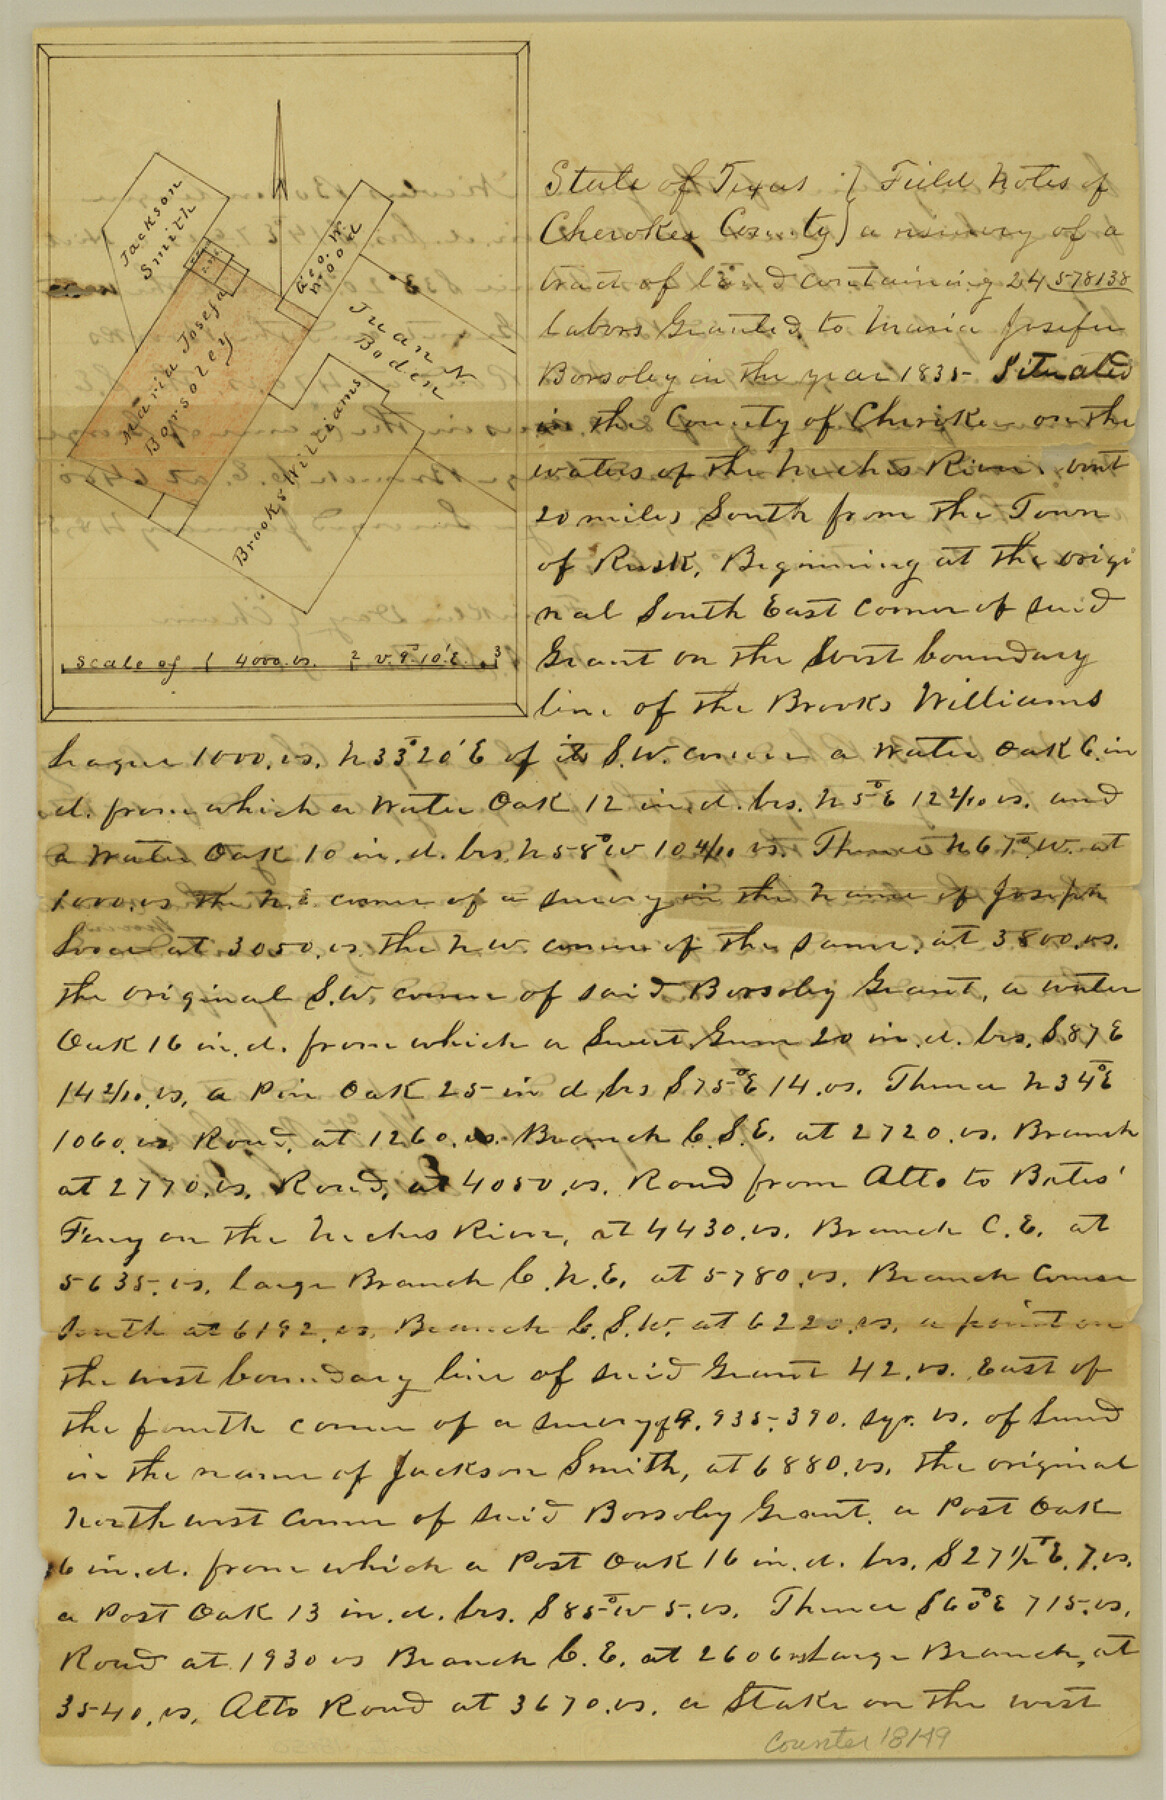 Jackson
Smith
Geo. W.
Wood
Juan N.
Boden
Maria Josefa
Borsoley
Brooks Williams
Scale of 4000 vs. v. 9° 10' E.
State of Texas } Field Notes of
Cherokee County } a survey of a
tract of land containing 24 578138
Labors Granted to Maria Josefa
Borsoley in the year 1835 Situated
in the County of Cherokee on the
waters of the Neches River, bout
20 miles South from the Town
of Rusk, Beginning at the origi
nal South East corner of said
Grant on the West boundary
line of the Brooks Williams
League 1000 vs. N 33° 20' E of its S.W. corner a Water Oak 6 in
d. from which a Water Oak 12 in. d. brs. N 5° E 12 2/10 vs. and
a Water Oak 10 in. d. brs. N 58° W 10 4/10 vs. Thence N 67° W. at
1000 vs the N. E corner of a survey in the name of Joseph
at 3050 vs the N W. corner of the same, at 3800 vs.
the original S.W. corner of said Borsoley Grant, a water
Oak 16 in. d. from which a Sweet Gum 20 in. d. brs. S 87 E
14 2/10 vs, a Pin Oak 25 in d brs S 75° E 14 vs. Thence N 34° E
1060 vs Road, at 1260 vs. Branch C. S. E. at 2720 vs. Branch
at 2770 vs. Road, at 4050 vs. Road from Alto to Bates'
Ferry on the Neches River, at 4430 vs. Branch C. E. at
5635 vs. large Branch C. N. E. at 5780 vs. Branch Course
South at 6192 vs. Branch C. S. W. at 6220 vs. a point on
the west boundary line of said Grant 42 vs. East of
the fourth corner of a survey of 9.935.390. sqr. vs. of Land
in the name of Jackson Smith, at 6880 vs. the original
North west corner of said Borsoley Grant, a Post Oak
16 in. d. from which a Post Oak 16 in. d. brs. S 27 1/2° E. 7. vs.
a Post Oak 13 in. d. brs. S 85° W 5. vs. Thence S 60° E 715 vs.
Road at 1930 vs Branch C. E. at 2606 vs Large Branch, at
3540 vs. Alto Road at 3670 vs. a Stake on the west
Counter 18149